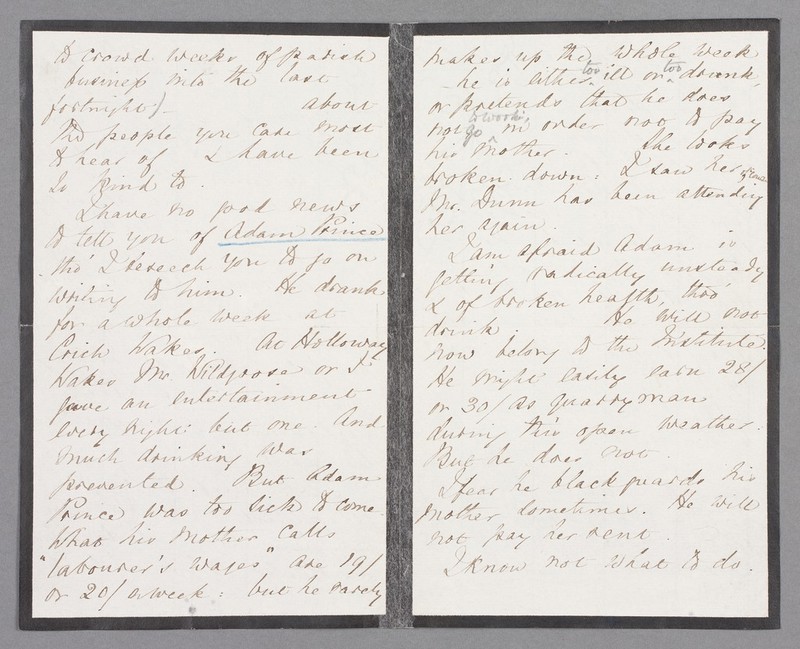 to crowd weeks of parish
business into the last
fortnight) - about
the people you care most
to hear of & have been
so kind to.
I have no good news
to tell you of Adam Prince
- tho' I beseech you to go on
writing to him. He drank
for a whole week at
Crich Wakes. At Holloway
Wakes Mr. Wildgoose or I
gave an entertainment
every night: but one. And
much drinking was
prevented. But Adam
Prince was too sick to come.
What his mother calls
"labourer's wages" are 19/
or 20/ a week: but he rarely
makes up the whole week
- he is either too ill or too drunk,
or pretends that he does
not go to work in order not to pay
his Mother. She looks
broken-down: I saw her
Mr. Dunn has been attending
her again.
I am afraid Adam is
getting radically unsteady
& of broken health, thro'
drink. He will not
now belong to the Institute.
He might easily earn 28/
or 30/ as quarryman
during this open weather.
But he does not.
I fear he blackguards his
Mother sometimes. He will
not pay her rent.
I know not what to do.